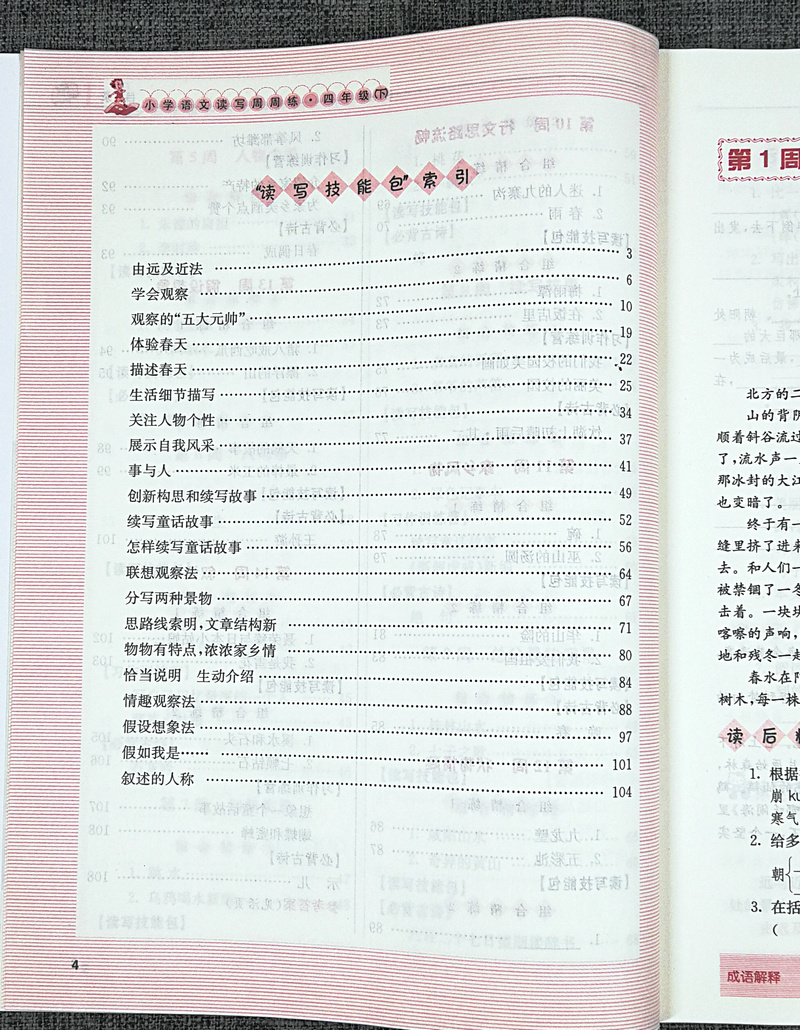 小学语文读写周周练·四年级(下)
“读写技能包”索引
由远及近法 …… 3
学会观察 …… 6
观察的“五大元帅” …… 10
体验春天 …… 19
描述春天 …… 22
生活细节描写 …… 25
关注人物个性 …… 34
展示自我风采 …… 37
事与人 …… 41
创新构思和续写故事 …… 49
续写童话故事 …… 52
怎样续写童话故事 …… 56
联想观察法 …… 64
分写两种景物 …… 67
思路线索明,文章结构新 …… 71
物物有特点,浓浓家乡情 …… 80
恰当说明 生动介绍 …… 84
情趣观察法 …… 88
假设想象法 …… 97
假如我是…… …… 101
叙述的人称 …… 104
4
第1周
北方的二
山的背阴
顺着斜谷流过
了,流水声一
那冰封的大江
也变暗了。
终于有一
缝里挤了进来
去。和人们一
被禁锢了一冬
击着。一块块
喀嚓的声响,
地和残冬一起
春水在阳
树木,每一株
读后
1. 根据
崩
寒气
2. 给多
朝
3. 在括
(
成语解释